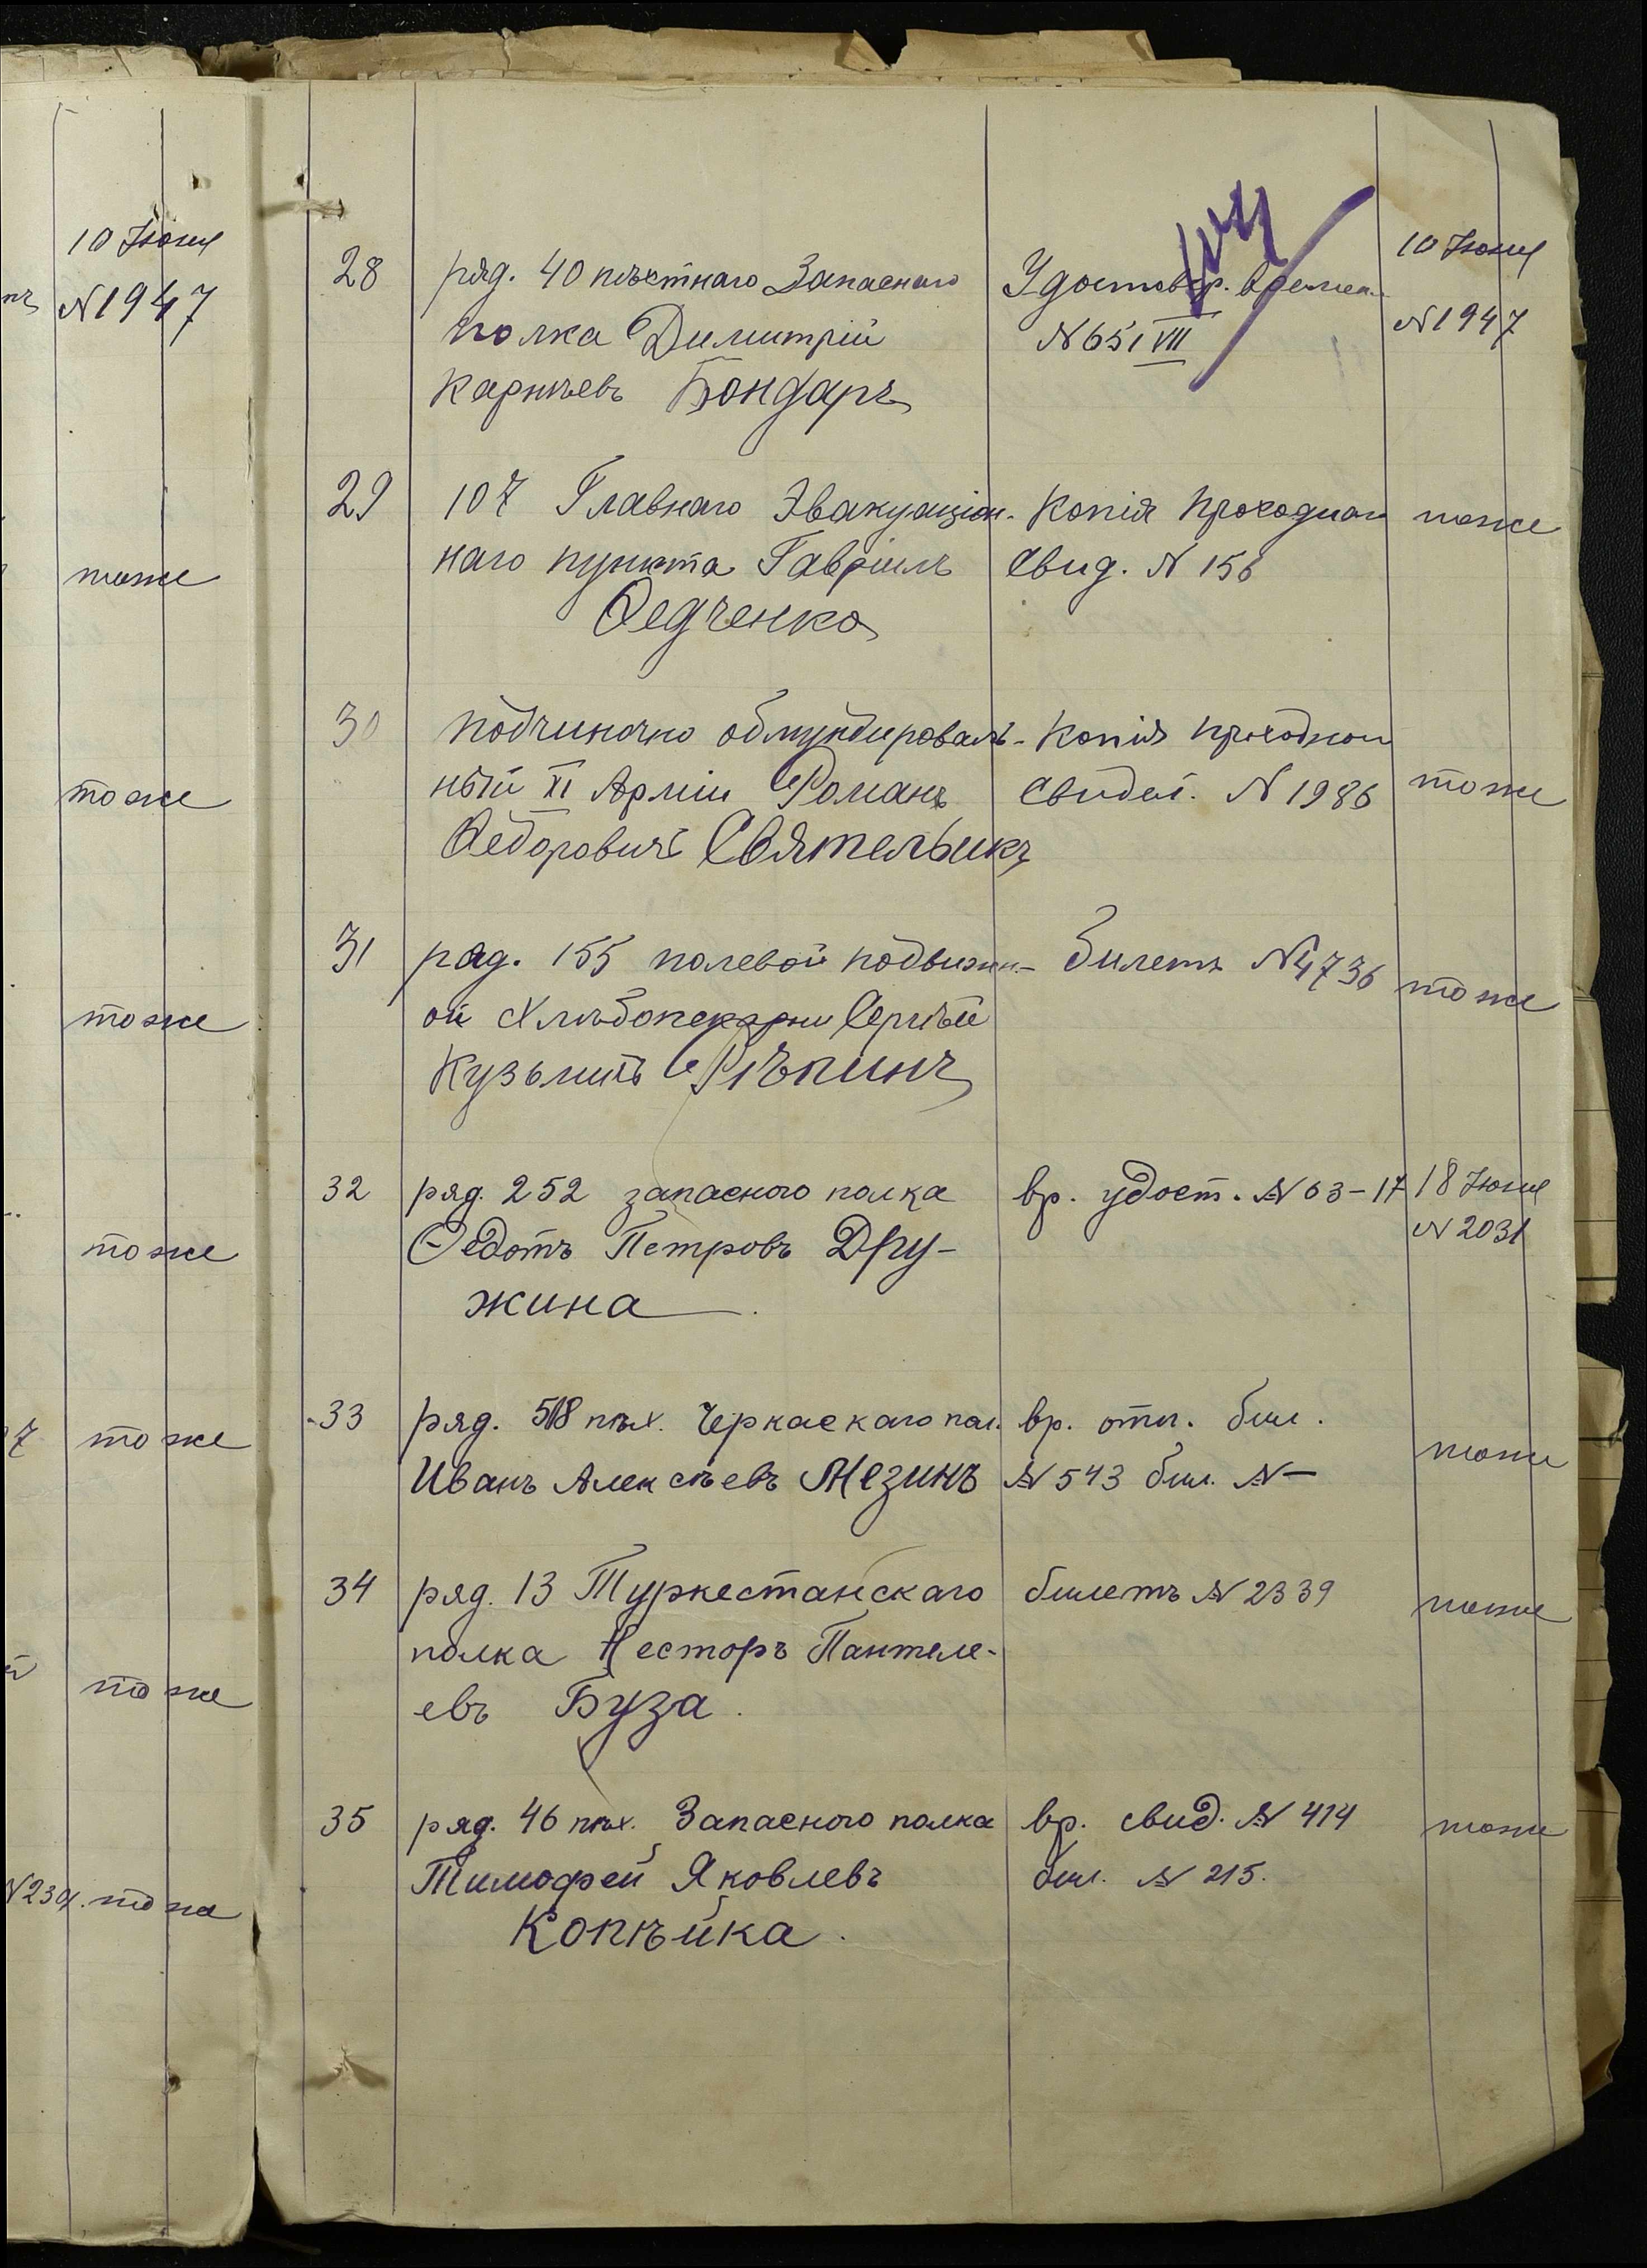 10 Іюня
№ 1947
тоже
тоже
тоже
тоже
тоже
тоже
тоже
28 ряд. 40 пѣхотнаго Запаснаго Удостовѣр. времен. 10 Іюня
полка Димитрій № 651 VII № 1947
Карпѣевъ Бондарь
29 107 Главнаго Эвакуаціон- Копія проходной тоже
наго пункта Гавріилъ свид. № 156
Федченко
30 Починочно обмундироваль- Копія проходной
ный XI Арміи Романъ свидет. № 1986 тоже
Федоровичъ Святельикъ
31 ряд. 155 полевой подвижн- билетъ № 4736 тоже
ой Хлѣбопекарни Сергѣй
Кузьмичъ Рѣпинъ
32 ряд. 252 запасного полка вр. удост. № 63-17 18 Іюня
Федотъ Петровъ Дру- № 2031
жина
33 ряд. 518 пѣх. Черкаскаго пол. вр. отп. бил.
Иванъ Алексѣевъ Мезинъ № 543 бил. № — тоже
34 ряд. 13 Туркестанскаго билетъ № 2339 тоже
полка Несторъ Пантеле-
евъ Буза.
35 ряд. 46 пѣх. Запасного полка вр. свид. № 414 тоже
Тимофей Яковлевъ бил. № 215.
Копѣйка.